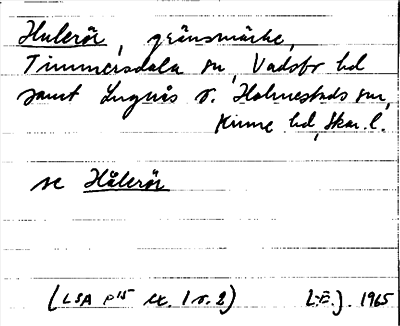 Hulerör, gränsmärke,
Timmersdala sn, Vadsbo hd
samt Lugnås o. Holmestads snr,
Kinne hd, Skar. l.
se Hålerör
(LSA P15 ex. 1 o. 2) 1965